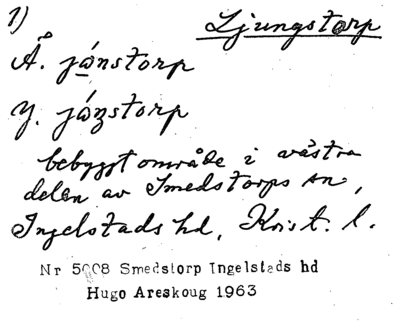 1)
Ljungstorp
Å. jánstorp
Y. jázstorp
bebyggt område i västra
delen av Smedstorps sn,
Ingelstads hd, Krist. l.
Nr 5008 Smedstorp Ingelstads hd
Hugo Areskoug 1963